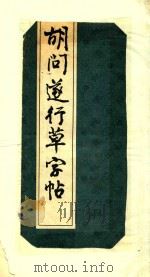 胡问遂行草字帖
mtoou.info